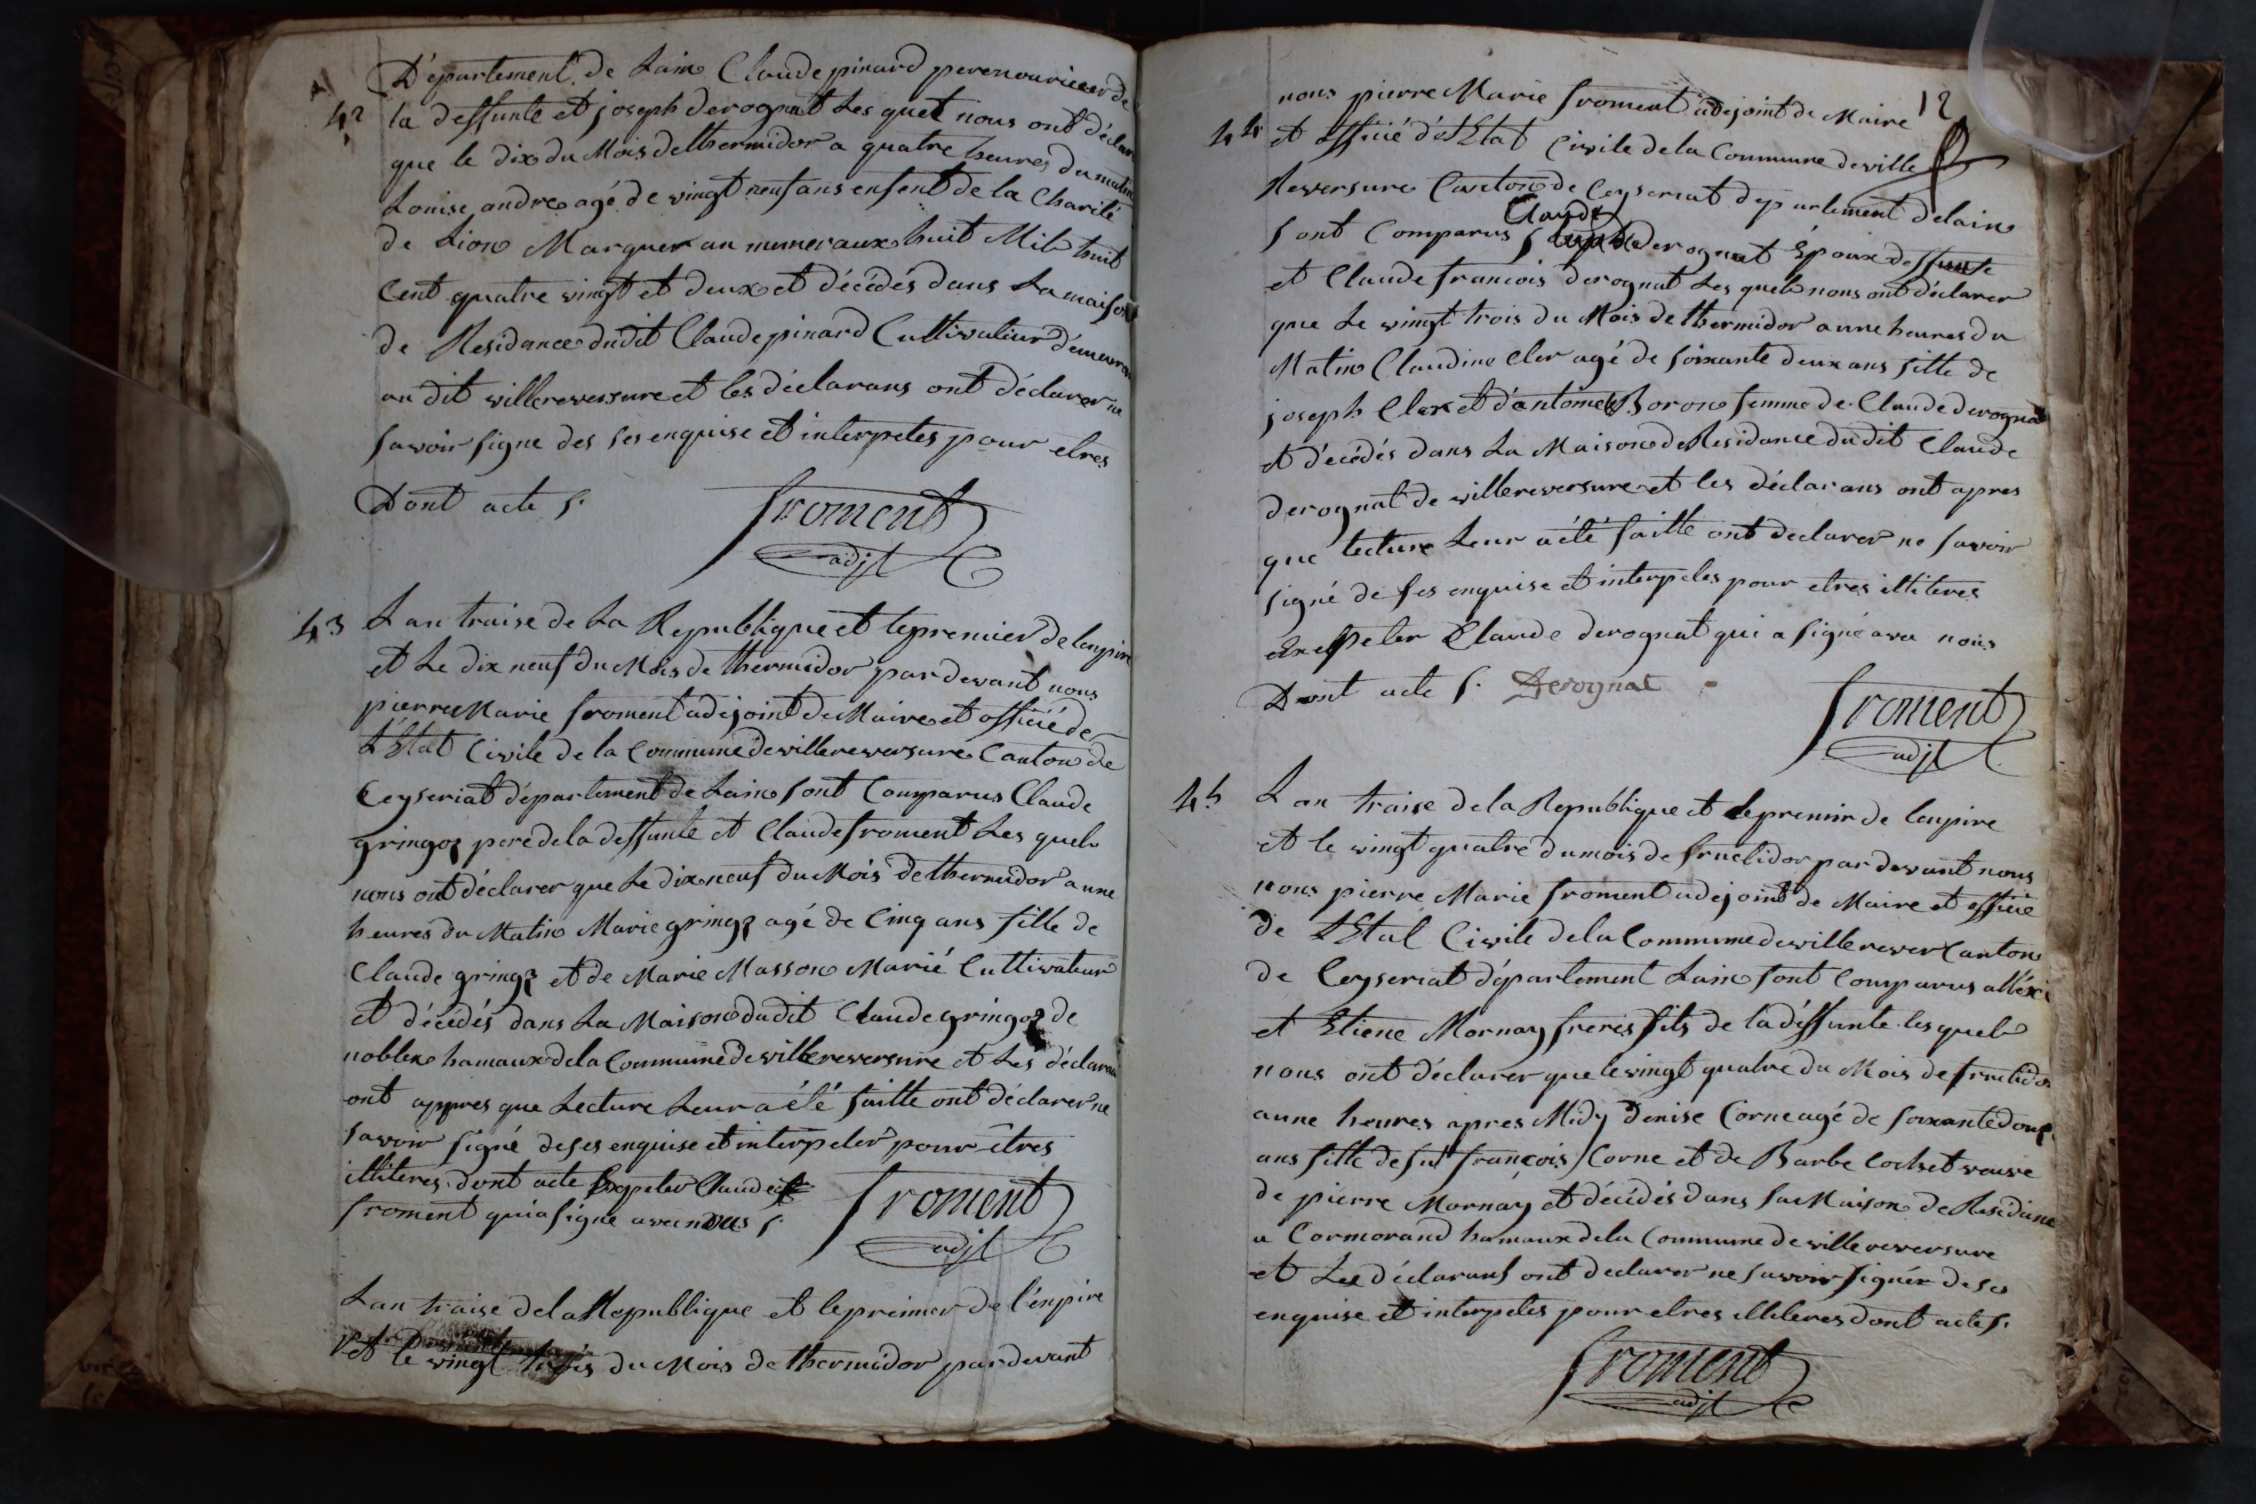 Département de Lain Claude pinard perenouricier de
42 la deffunte et joseph derognat Les quel nous ont déclar
que le dix du Mois de thermidor a quatre heures du matin
Louise andre agé de vingt neuf ans enfent de la Charité
de Lion Marquer au numeraux huit Mil huit
Cent quatre vingt et deux et décédés dans La maison
de Residance dudit Claude pinard Cultivateur démeuran
au dit villereversure et les déclarans ont déclarer ne
savoir signe des ses enquise et interpeles pour etres
Dont acte f.
froment
adjt
43 Lan traise de La Republique et le premier de lenpire
et Le dix neuf du Mois de thermidor par devant nous
pierre Marie froment adejoint de Maire et officié de
L'Etat Civile de la Commune de villereversure Canton de
Ceyseriat département de Lain sont Comparus Claude
gringoz pere de la deffunte et Claude froment Les quel
nous ont déclarer que Le dix neuf du Mois de thermidor a une
heures du Matin Marie gringz agé de Cinq ans fille de
Claude gringz et de Marie Masson Marié Cultivateur
et décédés dans La Maison dudit Claude gringoz de
noblen hamaux de la Commune de villereversure et Les déclaran
ont appres que Lecture Leur a été faitte ont déclarer ne
savoir signé de ses enquise et interpeler pour êtres
illiteres dont acte Claude
froment qui a signe avec nous f.
froment
adjt
Lan traise de la Republique et le preimer de l'enpire
et le vingt trois du Mois de thermidor par devant
12
nous pierre Marie froment adejoint de Maire
44 et officié d'Etat Civile de la Commune de ville
Reversure Canton de Ceyseriat département delain
Claude
sont Comparus derognat Époux deffunte
et Claude francois derognat Les quel nous ont déclarer
que Le vingt trois du Mois de thermidor a une heures du
Matin Claudine Cler agé de soixante deux ans fille de
joseph Cler et d'antoinete Boron femme de Claude derognat
et décédés dans La Maison de Residance dudit Claude
derognat de villereversure et les déclarans ont apres
que lecture Leur a été faitte ont declarer ne savoir
signé de ses enquise et interpeles pour etres illiteres
Claude derognat qui a signé avec nous
Dont acte f. Derognat
froment
adjt
45 Lan traise de la Republique et le premier de lenpire
et le vingt quatre du mois de fructidor par devant nous
nous pierre Marie froment adejoint de Maire et officié
de L'Etat Civile de la Commune de villerever Canton
de Ceyseriat département Lain sont Comparus alléxi
et Etiene Mornay freres fils de la déffunte les quel
nous ont déclarer que le vingt quatre du Mois de fructidor
a une heures apres Midy Denise Corne agé de soixante douz
ans fille de fut françois Corne et de Barbe Cochet veuve
de pierre Mornay et décédés dans sa Maison de Residance
a Cormorand hamaux de la Commune de villereversure
et Les déclarans ont declarer ne savoir signér de ses
enquise et interpeles pour etres illiteres dont acte f.
froment
adjt